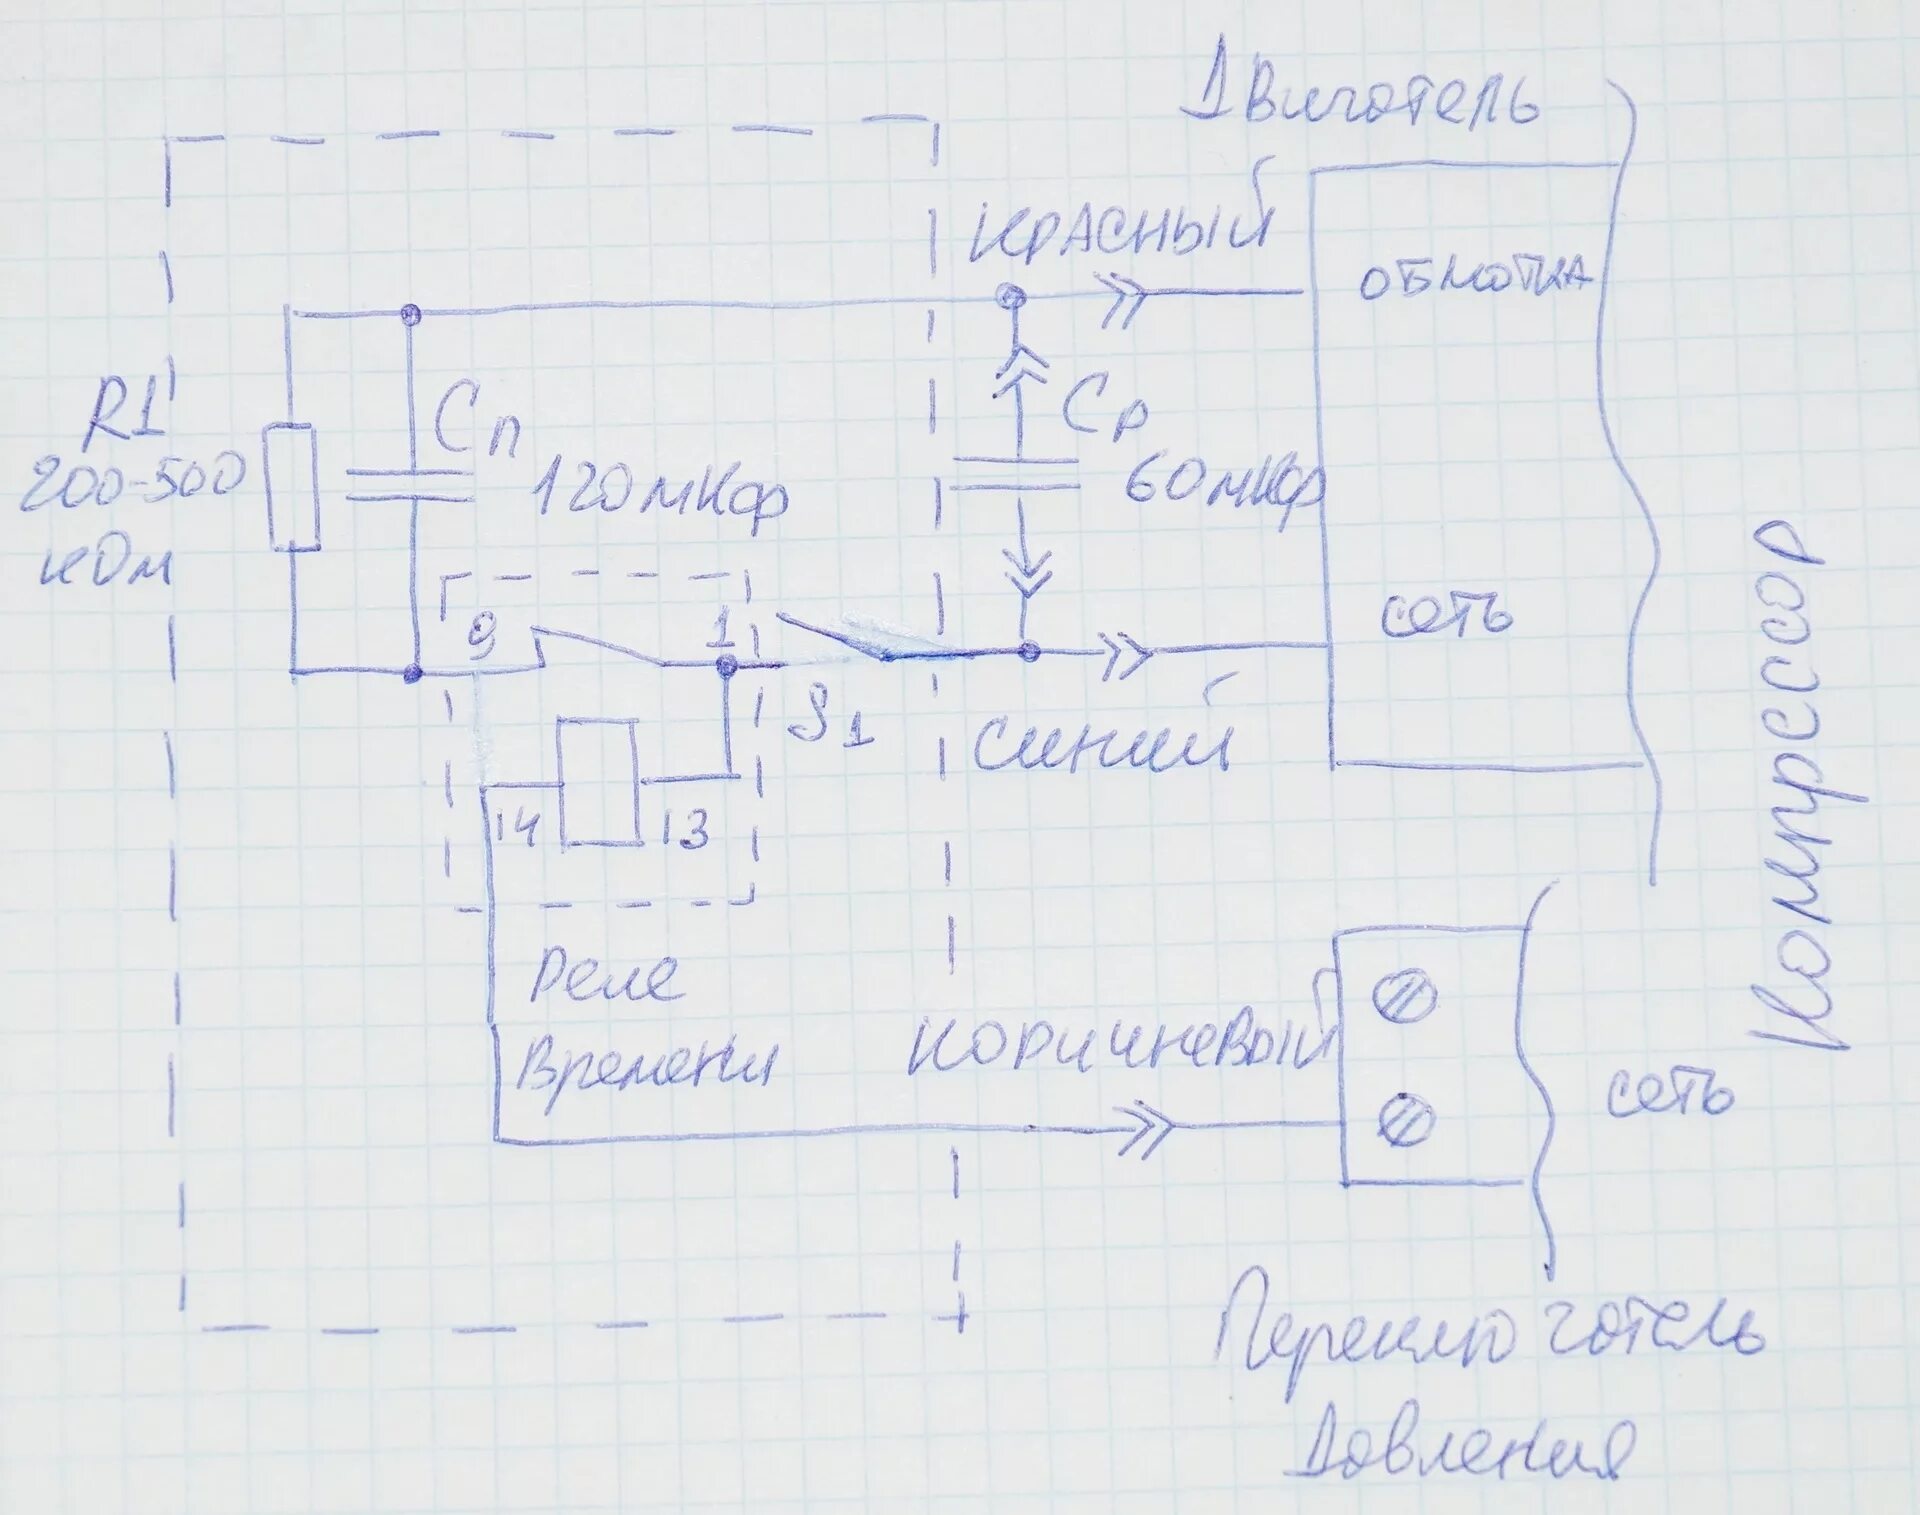 Двигатель
КРАСНЫЙ
ОБМОТКА
R1
200-500
кОм
Сп
120мкФ
Ср
60мкФ
9
1
S1
сеть
синий
14
13
Реле
Времени
коричневый
сеть
Компрессор
Переключатель
Довления